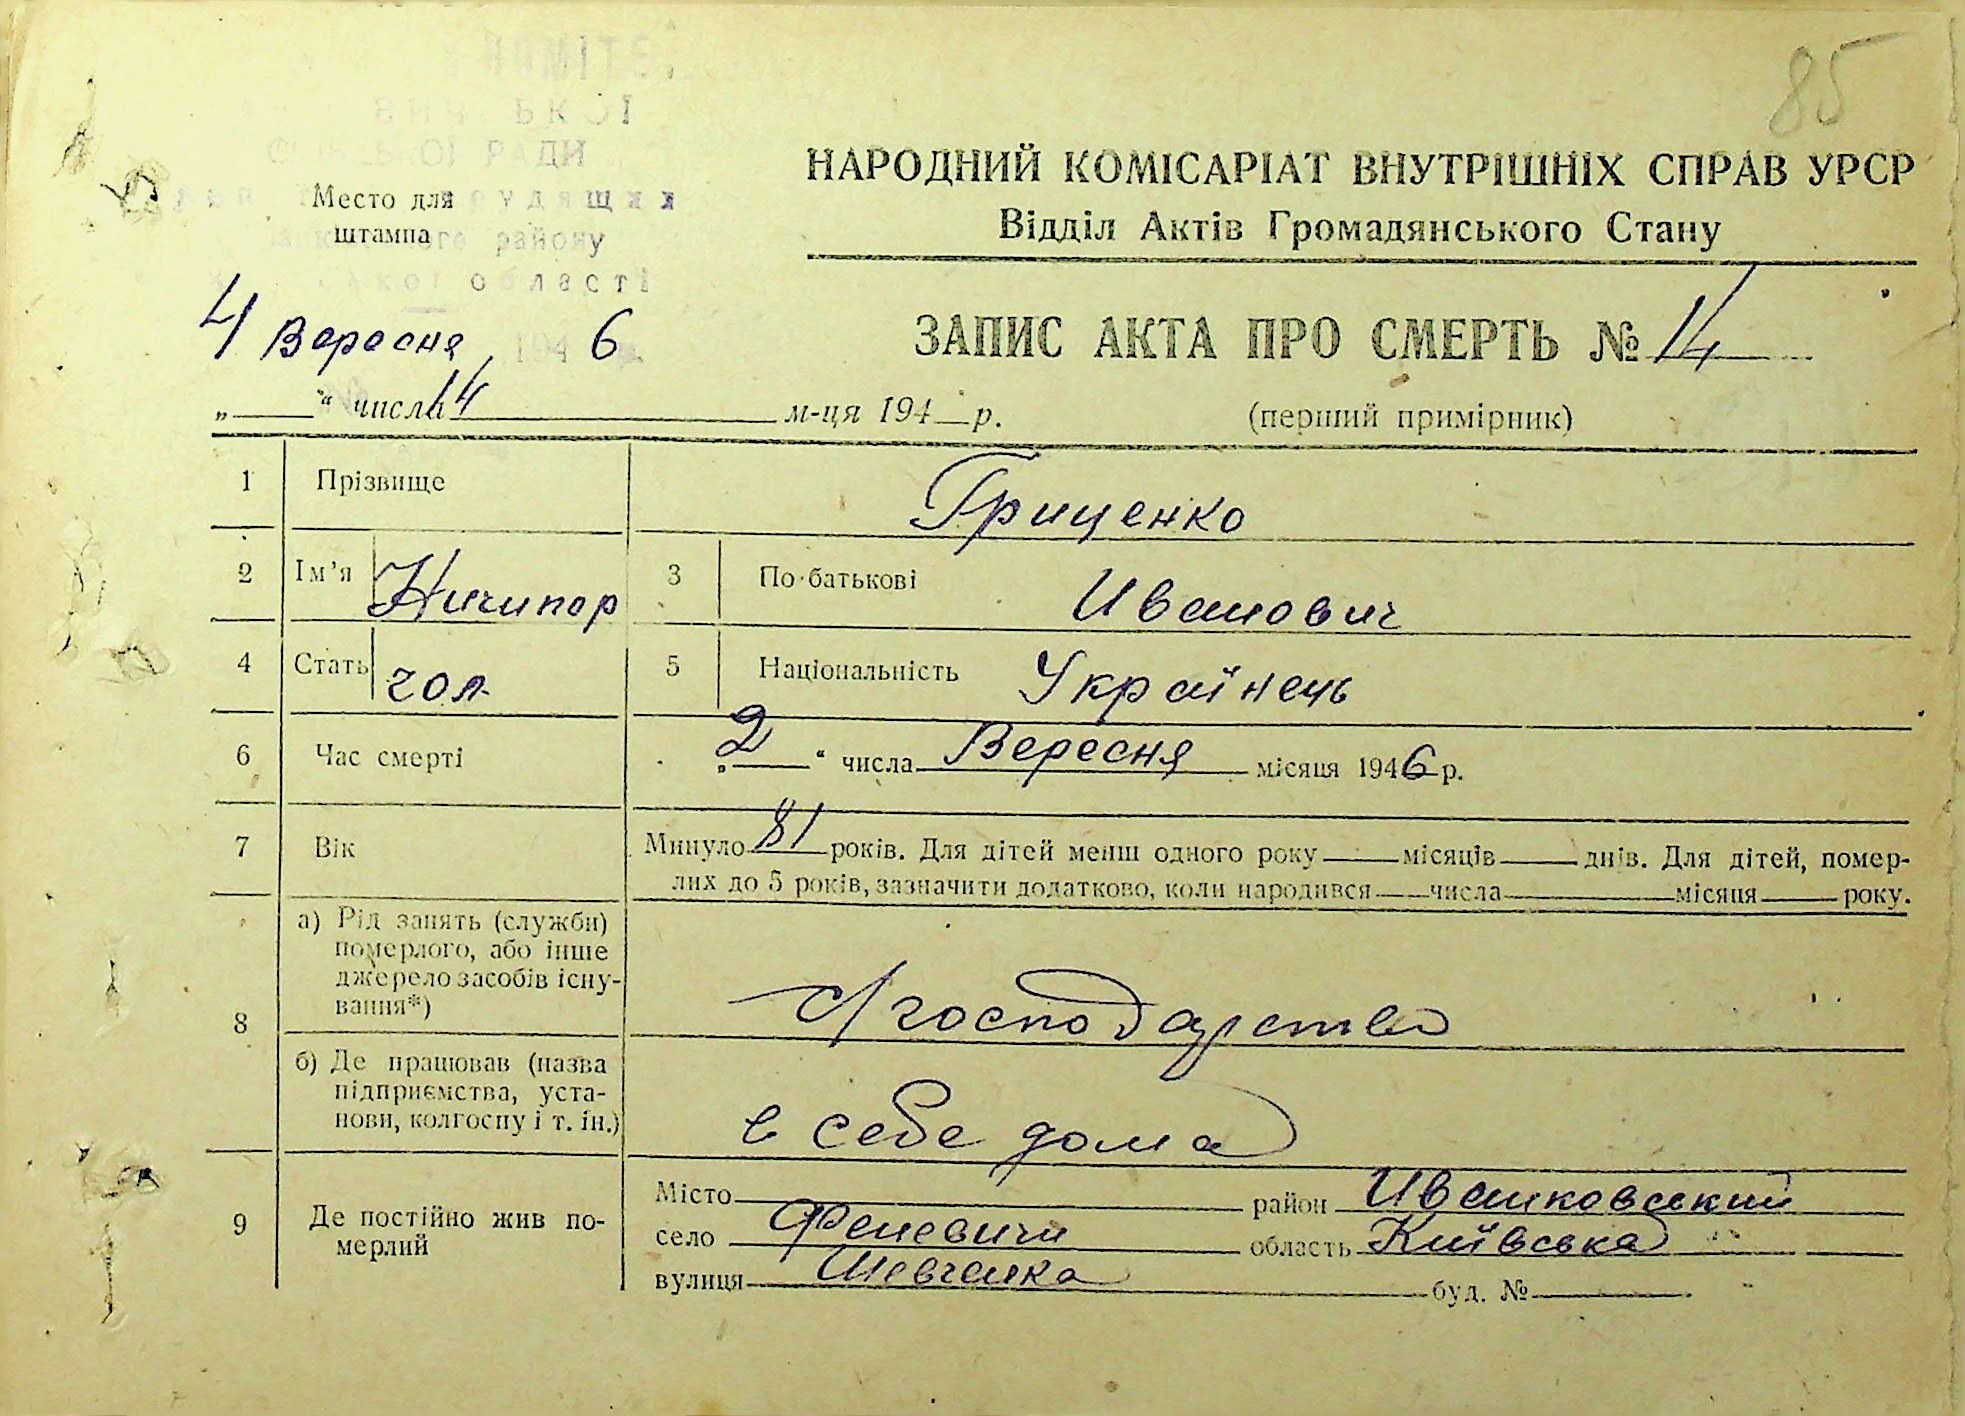 85
РАДИ
Место для
штампа
району
області
НАРОДНИЙ КОМІСАРІАТ ВНУТРІШНІХ СПРАВ УРСР
Відділ Актів Громадянського Стану
4 Вересня 1946
ЗАПИС АКТА ПРО СМЕРТЬ № 14
„ “ числа 14 м-ця 194 р.
(перший примірник)
1 Прізвище Гриценко
2 Ім'я Ничипор 3 По-батькові Иванович
4 Стать чол. 5 Національність Українець
6 Час смерті „2“ числа Вересня місяця 1946 р.
7 Вік Минуло 81 років. Для дітей менш одного року місяців днів. Для дітей, помер-
лих до 5 років, зазначити додатково, коли народився числа місяця року.
8 а) Рід занять (служби)
померлого, або інше
джерело засобів існу-
вання*)
с/господарство
б) Де працював (назва
підприємства, уста-
нови, колгоспу і т. ін.)
в себе дома
9 Де постійно жив по-
мерлий
Місто район Иванковський
село Феневичи область Київська
вулиця Шевченка буд. №